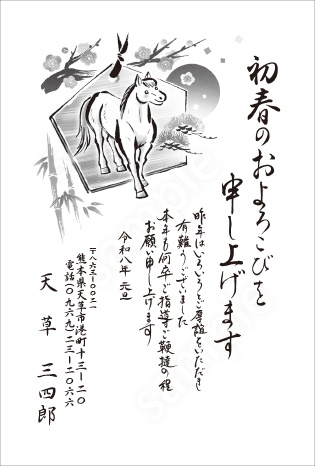 初春のおよろこびを
申し上げます
昨年はいろいろとご厚誼をいただき
有難うございました
本年も何卒ご指導ご鞭撻の程
お願い申し上げます
令和八年 元旦
〒八六三-〇〇二一
熊本県天草市港町十三-二〇
電話(〇九六九)二三-二〇六六
天草 三四郎